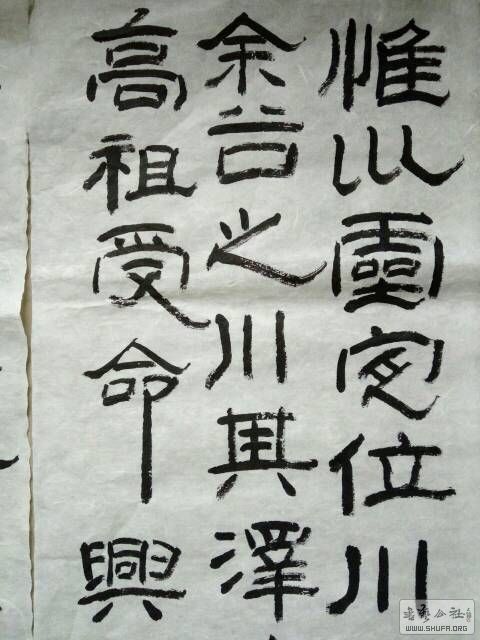 惟巛靈定位川
余谷之川其澤
高祖受命興
書藝公社
WWW.SHUFA.ORG